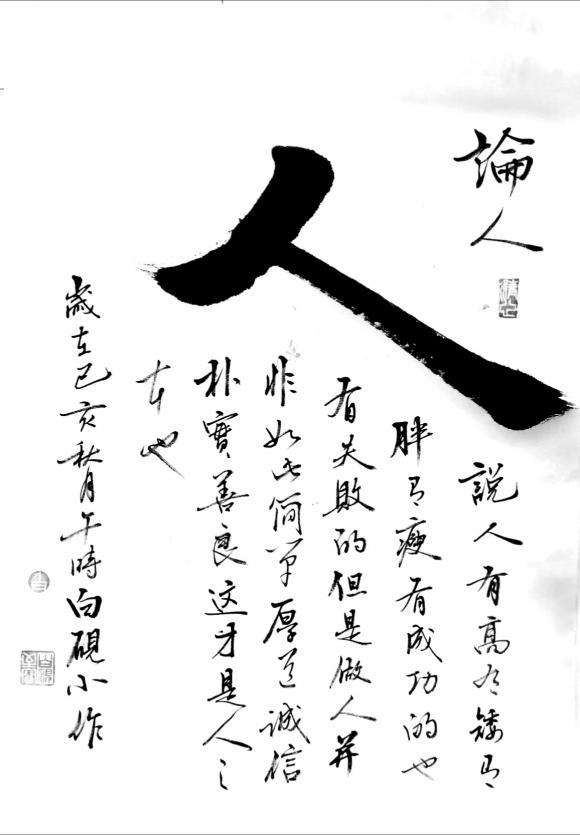 論人
人
説人有高有矮有
胖有瘦有成功的也
有失敗的但是做人并
非如此簡單厚道誠信
朴實善良这才是人之
本也
歲在己亥秋月午時白硯小作